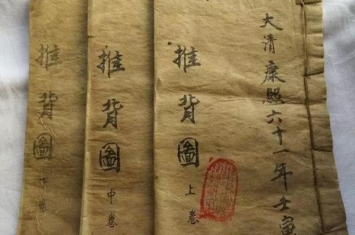 大清康熙六十一年壬寅
推背圖 上卷
推背圖 中卷
推背圖 下卷